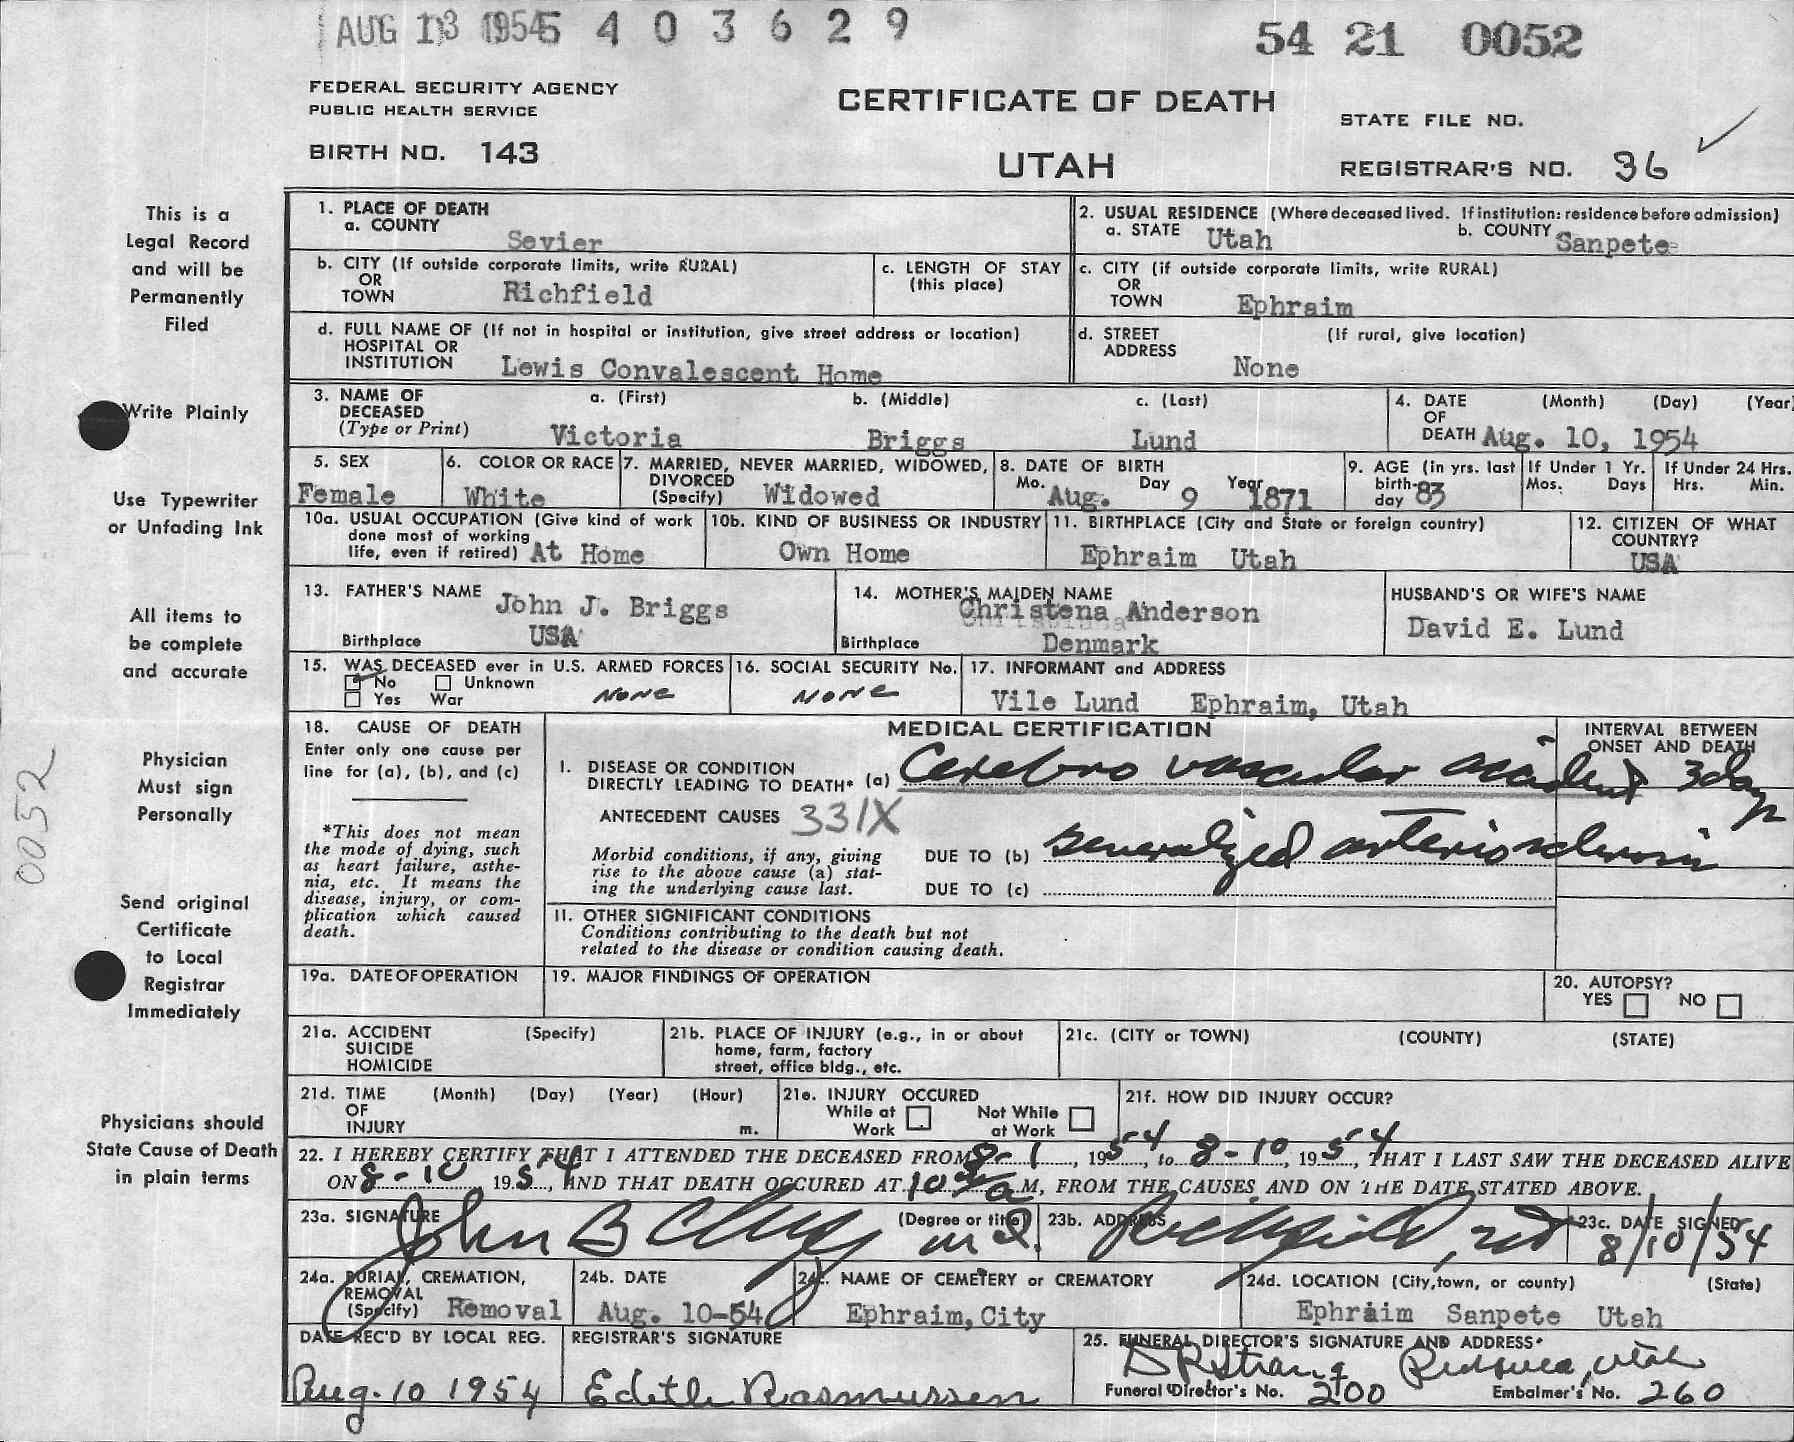 AUG 13 1954 5 4 0 3 6 2 9
54 21 0052
FEDERAL SECURITY AGENCY
PUBLIC HEALTH SERVICE
CERTIFICATE OF DEATH
STATE FILE NO.
BIRTH NO. 143
UTAH
REGISTRAR'S NO. 36
This is a
Legal Record
and will be
Permanently
Filed
Write Plainly
Use Typewriter
or Unfading Ink
All items to
be complete
and accurate
Physician
Must sign
Personally
0052
Send original
Certificate
to Local
Registrar
Immediately
Physicians should
State Cause of Death
in plain terms
1. PLACE OF DEATH
a. COUNTY Sevier
2. USUAL RESIDENCE (Where deceased lived. If institution: residence before admission)
a. STATE Utah b. COUNTY Sanpete
b. CITY (If outside corporate limits, write RURAL)
OR
TOWN Richfield
c. LENGTH OF STAY
(this place)
c. CITY (if outside corporate limits, write RURAL)
OR
TOWN Ephraim
d. FULL NAME OF (If not in hospital or institution, give street address or location)
HOSPITAL OR
INSTITUTION Lewis Convalescent Home
d. STREET (If rural, give location)
ADDRESS None
3. NAME OF a. (First) b. (Middle) c. (Last)
DECEASED
(Type or Print) Victoria Briggs Lund
4. DATE (Month) (Day) (Year)
OF
DEATH Aug. 10, 1954
5. SEX
Female
6. COLOR OR RACE
White
7. MARRIED, NEVER MARRIED, WIDOWED,
DIVORCED
(Specify) Widowed
8. DATE OF BIRTH
Mo. Day Year
Aug. 9 1871
9. AGE (in yrs. last
birth-
day 83
If Under 1 Yr.
Mos. Days
If Under 24 Hrs.
Hrs. Min.
10a. USUAL OCCUPATION (Give kind of work
done most of working
life, even if retired) At Home
10b. KIND OF BUSINESS OR INDUSTRY
Own Home
11. BIRTHPLACE (City and State or foreign country)
Ephraim Utah
12. CITIZEN OF WHAT
COUNTRY?
USA
13. FATHER'S NAME John J. Briggs
Birthplace USA
14. MOTHER'S MAIDEN NAME
Christena Anderson
Birthplace Denmark
HUSBAND'S OR WIFE'S NAME
David E. Lund
15. WAS DECEASED ever in U.S. ARMED FORCES
No Unknown
Yes War None
16. SOCIAL SECURITY No.
None
17. INFORMANT and ADDRESS
Vile Lund Ephraim, Utah
18. CAUSE OF DEATH
Enter only one cause per
line for (a), (b), and (c)
*This does not mean
the mode of dying, such
as heart failure, asthe-
nia, etc. It means the
disease, injury, or com-
plication which caused
death.
MEDICAL CERTIFICATION
INTERVAL BETWEEN
ONSET AND DEATH
I. DISEASE OR CONDITION
DIRECTLY LEADING TO DEATH* (a) Cerebro vascular accident 3 days
ANTECEDENT CAUSES 331X
Morbid conditions, if any, giving
rise to the above cause (a) stat-
ing the underlying cause last.
DUE TO (b) Generalized arteriosclerosis
DUE TO (c)
II. OTHER SIGNIFICANT CONDITIONS
Conditions contributing to the death but not
related to the disease or condition causing death.
19a. DATE OF OPERATION
19. MAJOR FINDINGS OF OPERATION
20. AUTOPSY?
YES NO
21a. ACCIDENT (Specify)
SUICIDE
HOMICIDE
21b. PLACE OF INJURY (e.g., in or about
home, farm, factory
street, office bldg., etc.
21c. (CITY or TOWN) (COUNTY) (STATE)
21d. TIME (Month) (Day) (Year) (Hour)
OF
INJURY m.
21e. INJURY OCCURED
While at Not While
Work at Work
21f. HOW DID INJURY OCCUR?
22. I HEREBY CERTIFY THAT I ATTENDED THE DECEASED FROM 8-1, 1954, to 8-10, 1954, THAT I LAST SAW THE DECEASED ALIVE
ON 8-10, 1954, AND THAT DEATH OCCURED AT 10 a M, FROM THE CAUSES AND ON THE DATE STATED ABOVE.
23a. SIGNATURE (Degree or title)
John B M.D.
23b. ADDRESS
Richfield, Ut
23c. DATE SIGNED
8/10/54
24a. BURIAL, CREMATION,
REMOVAL
(Specify) Removal
24b. DATE
Aug. 10-54
24c. NAME OF CEMETERY or CREMATORY
Ephraim, City
24d. LOCATION (City, town, or county) (State)
Ephraim Sanpete Utah
DATE REC'D BY LOCAL REG.
Aug. 10 1954
REGISTRAR'S SIGNATURE
Edith Rasmussen
25. FUNERAL DIRECTOR'S SIGNATURE AND ADDRESS
Richfield, Utah
Funeral Director's No. 200 Embalmer's No. 260